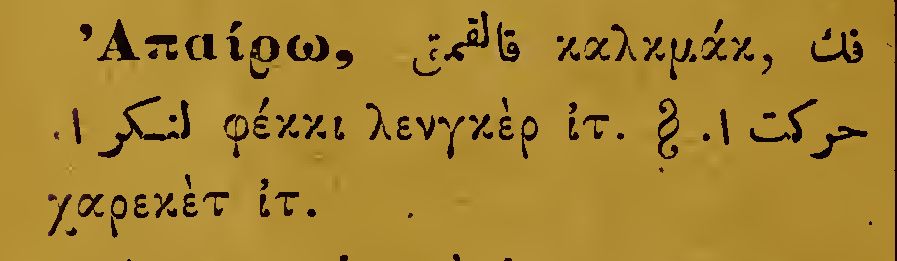 Ἀπαίρω, قالقمق καλκμάκ, فك
لنكر ا. φέκκι λενγκὲρ ἰτ. § حركت ا.
χαρεκὲτ ἰτ.